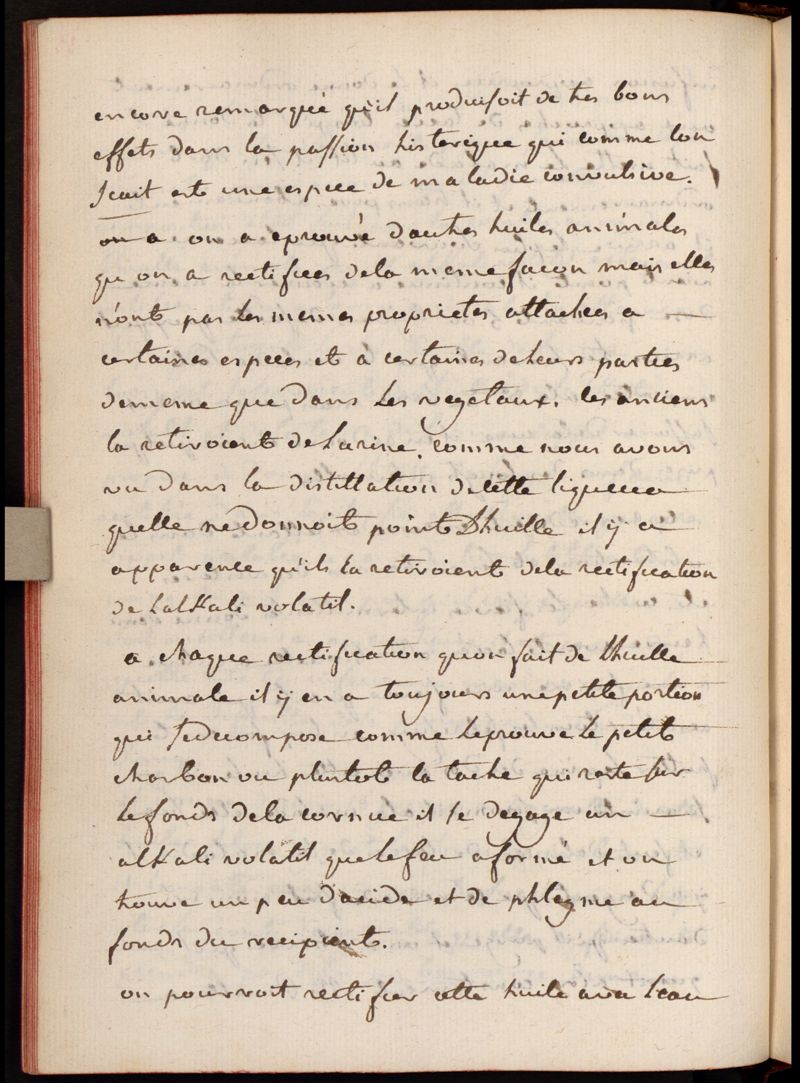 encore remarqué qu'il produisoit de tres bons
effets dans la passion histerique qui comme lon
sçait est une espece de maladie convulsive.
ou a on a eprouvé dautres huiles animales
qu on a rectifiees dela meme façon mais elles
n'ont pas les memes proprietes attachees a
certaines especes et à certaines de leurs parties
dememe que dans les vegetaux. les anciens
la retiroient de Lurine. comme nous avons
vu dans la distillation de cette liqueur
quelle ne donnoit point Dhuille il y a
apparence qu'ils la retiroient dela rectification
de Lalkali volatil.
a chaque rectification quon fait de Lhuille
animale il y en a toujours une petite portion
qui se decompose comme le prouve le petit
charbon ou plustot la tache qui reste sur
le fonds dela cornue il se degage un
alkali volatil que le feu a formé et on
trouve un peu dacide et de phlegme au
fonds du recipient.
on pourroit rectifier cette huile avec leau